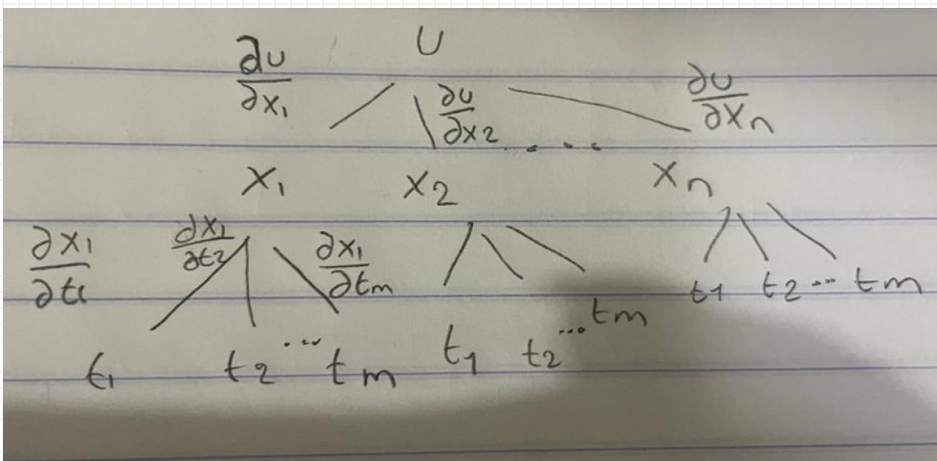 ∂u/∂x₁ U ∂u/∂x₂ ∂u/∂xₙ
....
x₁ x₂ xₙ
∂x₁/∂t₁ ∂x₁/∂t₂ ∂x₁/∂tₘ
t₁ t₂ ... tₘ t₁ t₂ ... tₘ t₁ t₂ ... tₘ